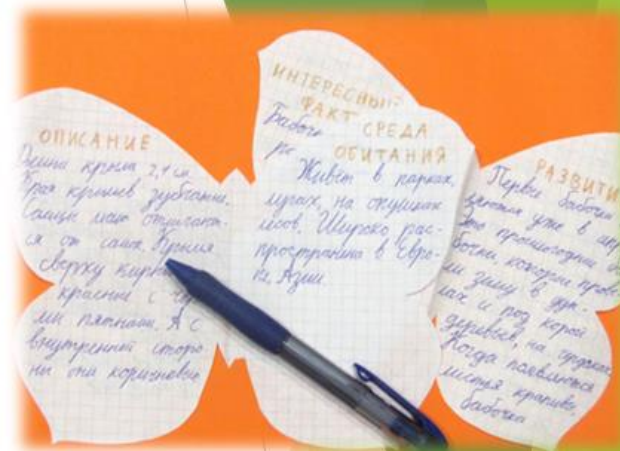 ОПИСАНИЕ
Длина крыла 2,4 см.
Края крыльев зубчатые.
Самцы мало отличают-
ся от самок. Крылья
сверху кирп
красные с
ми пятнами. А с
внутренней сторо
ны они коричневые
ИНТЕРЕСНЫЙ
ФАКТ
Бабоч
СРЕДА
ОБИТАНИЯ
Живёт в парках,
лугах, на опушках
лесов. Широко рас-
пространена в Евро-
пе, Азии.
РАЗВИТИ
Первые бабочки
уже в апр
Это прошлогодние
бочки, которые пров
ли зиму в дуп-
лах и под корой
деревьев, на чердаках.
Когда появляются
листья крапивы,
бабочка